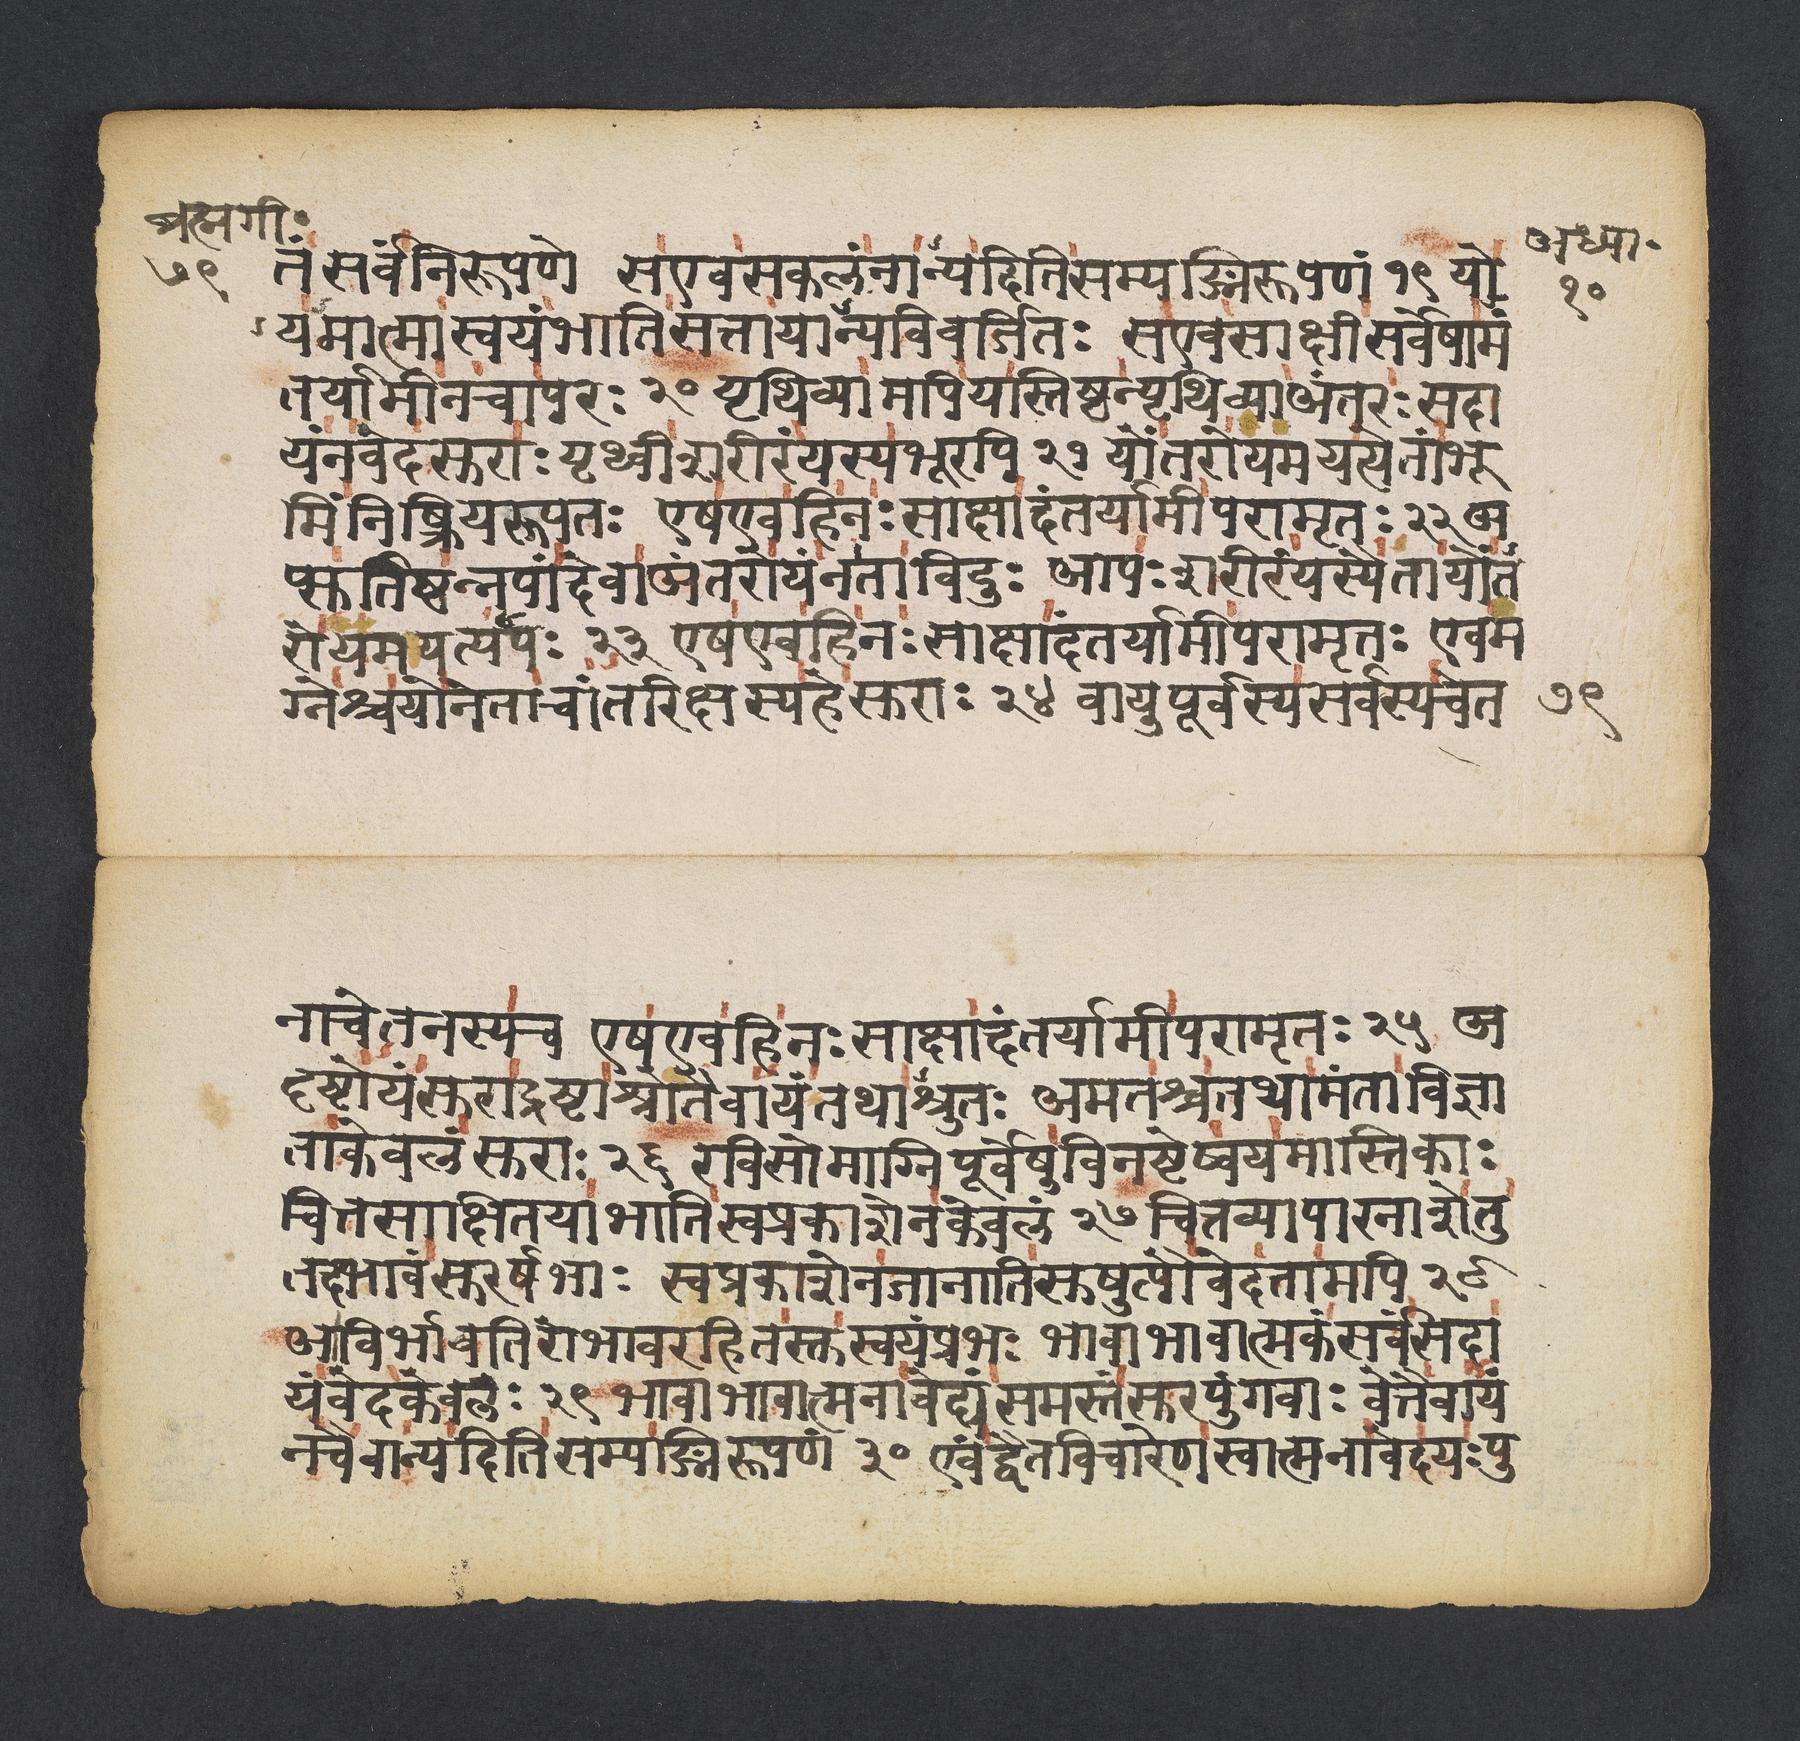 ब्रह्मगीः
७९
अध्या॰
१०
तं सर्वं निरूपणे सएवसकलंनान्यदितिसम्यङ्निरूपणं १९ यो
यमात्मास्वयंभातिसत्तायान्यविवर्जितः सएवसाक्षीसर्वेषामं
तर्यामीनचापरः २० पृथिव्यामपियस्तिष्ठन्पृथिव्याअंतरः सदा
यंनवेदसुराः पृथ्वीशरीरंयस्यभूरपि २१ योंतरोयमयत्येतांभू
मिंनिष्क्रियरूपतः एषएवहिनः साक्षादंतर्यामीपरामृतः २२ अ
प्सुतिष्ठन्नपांदेवाअंतरोयंनताविदुः आपः शरीरंयस्यैतायोंत
रोयमयत्यपः २३ एषएवहिनः साक्षादंतर्यामीपरामृतः एवम
ग्नेश्चयोनेताचांतरिक्षस्यहेसुराः २४ वायुपूर्वस्यसर्वस्यचेत
७९
नाचेतनस्यच एषएवहिनः साक्षादंतर्यामीपरामृतः २५ अ
दृष्टोयंसुराद्रष्टाश्रोतैवायंतथाश्रुतः अमतश्चतथामंताविज्ञा
ताकेवलंसुराः २६ रविसोमाग्निपूर्वेषुविनष्टेष्वयमास्तिकाः
चित्तसााक्षितयाभातिस्वप्रकाशेनकेवलं २७ चित्तव्यापारनाशेतु
तदभावंसुरर्षभाः स्वप्रकाशेनजानातिसुषुप्तौवेदतामपि २८
आविर्भावतिरोभावरहितस्तुस्वयंप्रभः भावाभावात्मकंसर्वंसदा
यंवेदकेवलः २९ भावाभावात्मनावेद्यंसमस्तंसुरपुंगवाः वेत्तैवायं
नचैवान्यदितिसम्यङ्निरूपणं ३० एवंद्वैतविचारेणस्वात्मनावेदयः पु